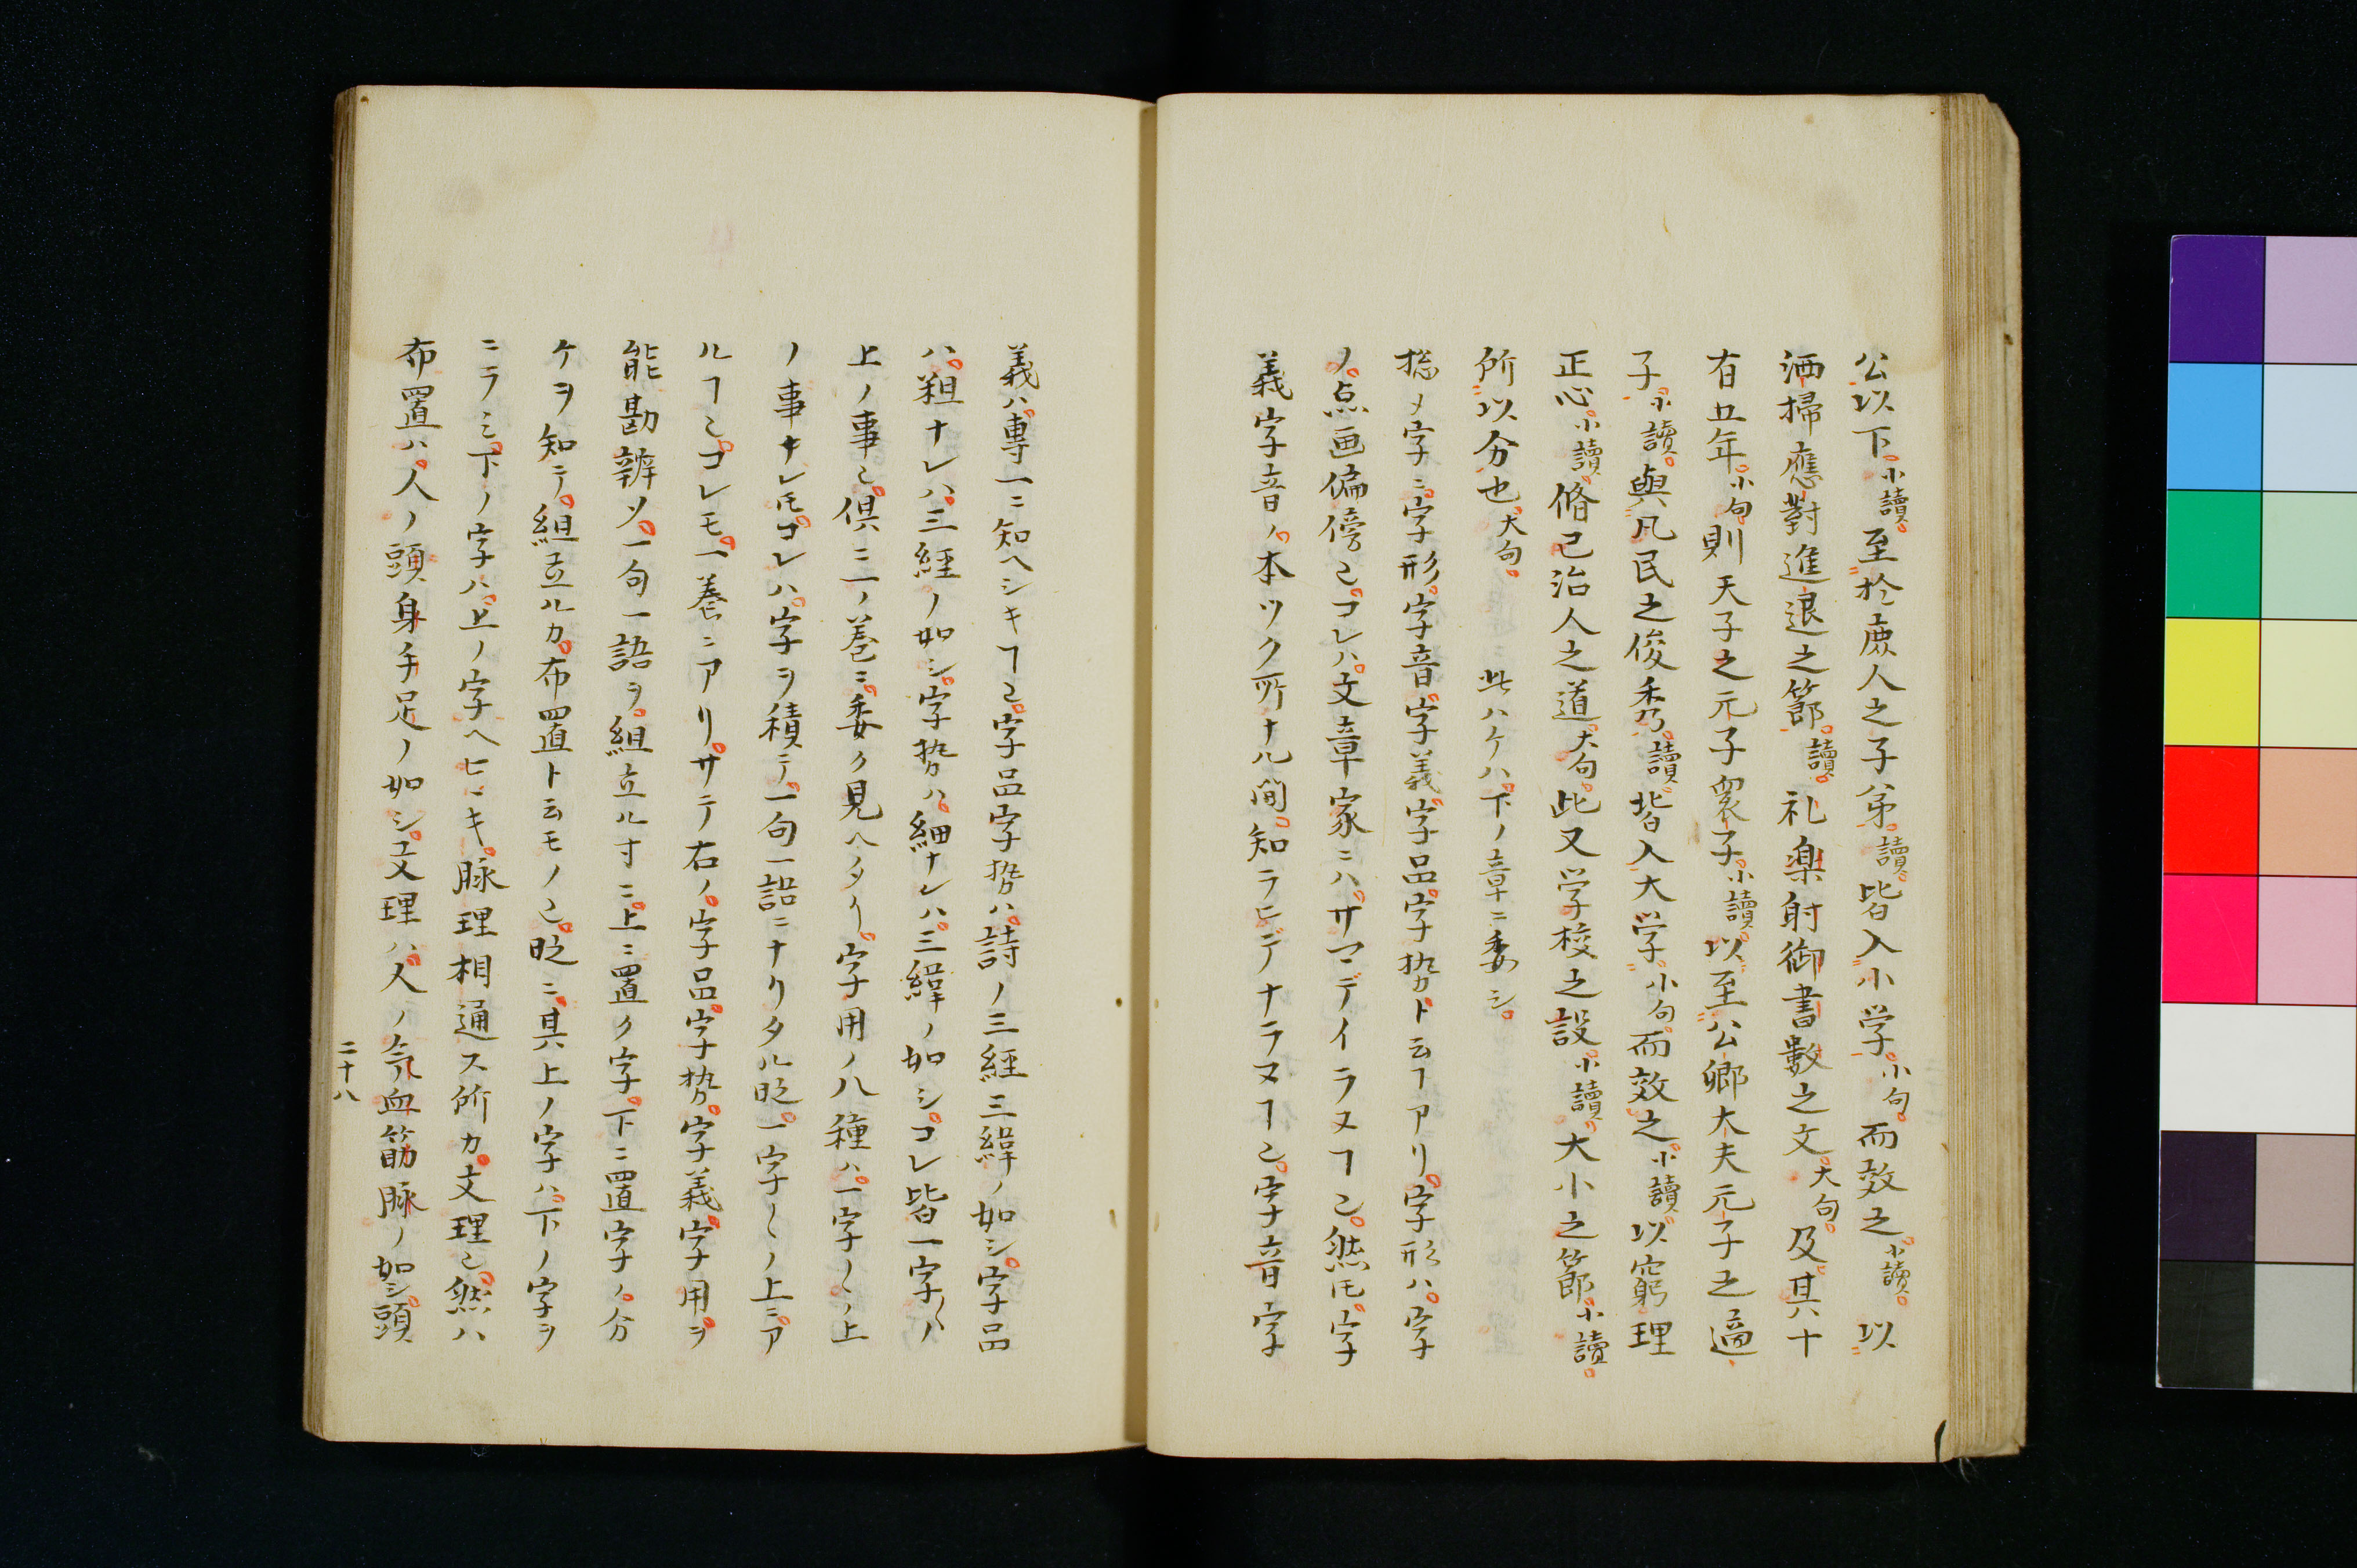 公以下。小讀。至於庶人之子弟。讀。皆入小学。小句。而效之。小讀。以
洒掃應對進退之節。讀。礼楽射御書数之文。大句。及其十
有五年。小句。則天子之元子衆子。小讀。以至公卿大夫元子之適
子。小讀。與凡民之俊秀。讀。皆入大学。小句。而效之。小讀。以窮理
正心。小讀。脩己治人之道。大句。此又学校之設。小讀。大小之節。小讀。
所以分也。大句。 此ハケハ。下ノ章ニ委シ。
揔ノ字ニ。字形。字音。字義。字品。字势トムヿアリ。字形ハ。字
ノ。点画偏傍也。コレハ。文章家ニハ。サマデイラヌヿ也。然𪜈。字
義字音ノ。本ツク所ナル間。知ラヒデナラヌヿ也。字音字
義ハ。專一ニ知ヘシキヿ也。字品字势ハ。詩ノ三經三緯ノ如シ。字品
ハ。粗ナレハ。三經ノ如シ。字势ハ。細ナレハ。三緯ノ如シ。コレ皆一字〱ノ
上ノ事也。倶ニ二ノ巻ニ。委ク見ヘタリ。字用ノ八種ハ。一字〱ノ上
ノ事ナレ𪜈。コレハ。字ヲ積テ。一句一語ニナリタル時。一字〱ノ上ニ。ア
ルヿ也。コレモ。一巻ニアリ。サテ右ノ。字品。字势。字義。字用。ヲ
能勘辨ソ。一句一語ヲ。組立ル寸ニ。上ニ置ク字。下ニ置字ノ。分
ケヲ知テ。組立ルカ。布置ト云モノ也。時ニ。其上ノ字ハ。下ノ字ヲ
ニラミ。下ノ字ハ。上ノ字ヘヒヾキ。脉理相通ス所カ。文理也。然ハ
布置ハ。人ノ頭身手足ノ如シ。文理ハ。人ノ気血筋脉ノ如シ。頭
二十八